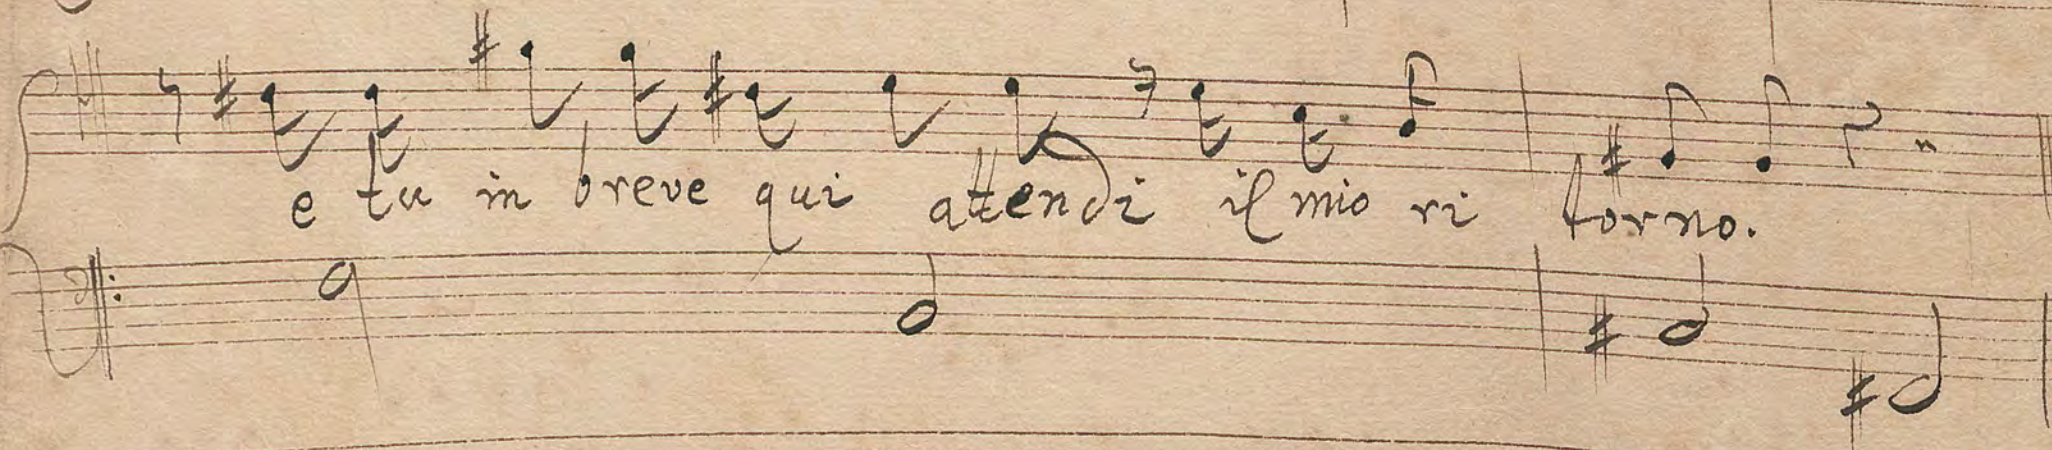 e tu in breve qui attendi il mio ri torno.